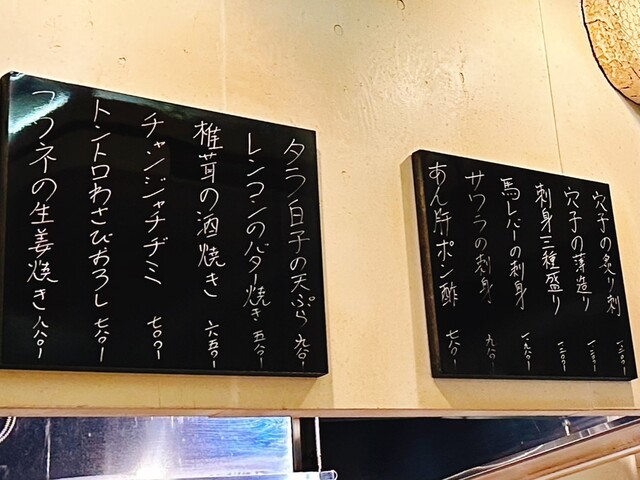 タラ白子の天ぷら 九〇〇-
レンコンのバター焼き 五八〇-
椎茸の酒焼き 六五〇-
チャンジャチヂミ 七〇〇-
トントロわさびおろし 七八〇-
つくねの生姜焼き 八八〇-
穴子の炙り刺
穴子の薄造り
刺身三種盛り
馬レバーの刺身
サワラの刺身 九八〇-
あん肝ポン酢 七八〇-